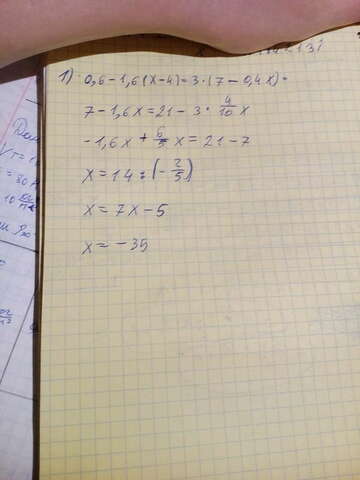 1) 0,6-1,6(x-4)=3·(7-0,4x)=
7-1,6x=21-3·4/10x
-1,6x+6/5x=21-7
x=14:(-2/5)
x=7x-5
x=-35